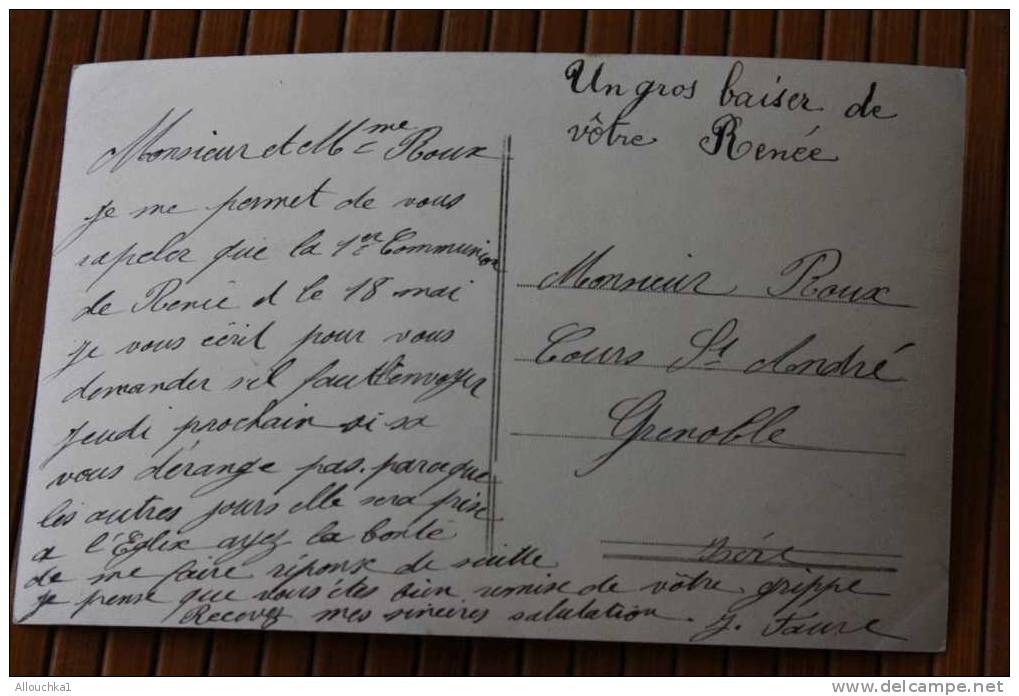 Monsieur et Mme Roux
je me permet de vous
rapeler que la 1er Communion
de Renée et le 18 mai
je vous écrit pour vous
demander s'il faut l'envoyer
jeudi prochain si sa
vous dérange pas. parceque
les autres jours elle sera prise
a l'Eglise ayez la bonté
de me faire réponse de suitte
je pense que vous êtes bien remise de vôtre grippe
Recevez mes sincères salutation.
J. Faure
Un gros baiser de
vôtre Renée
Monsieur Roux
Cours St André
Grenoble
Isère
Allouchka1
www.delcampe.net